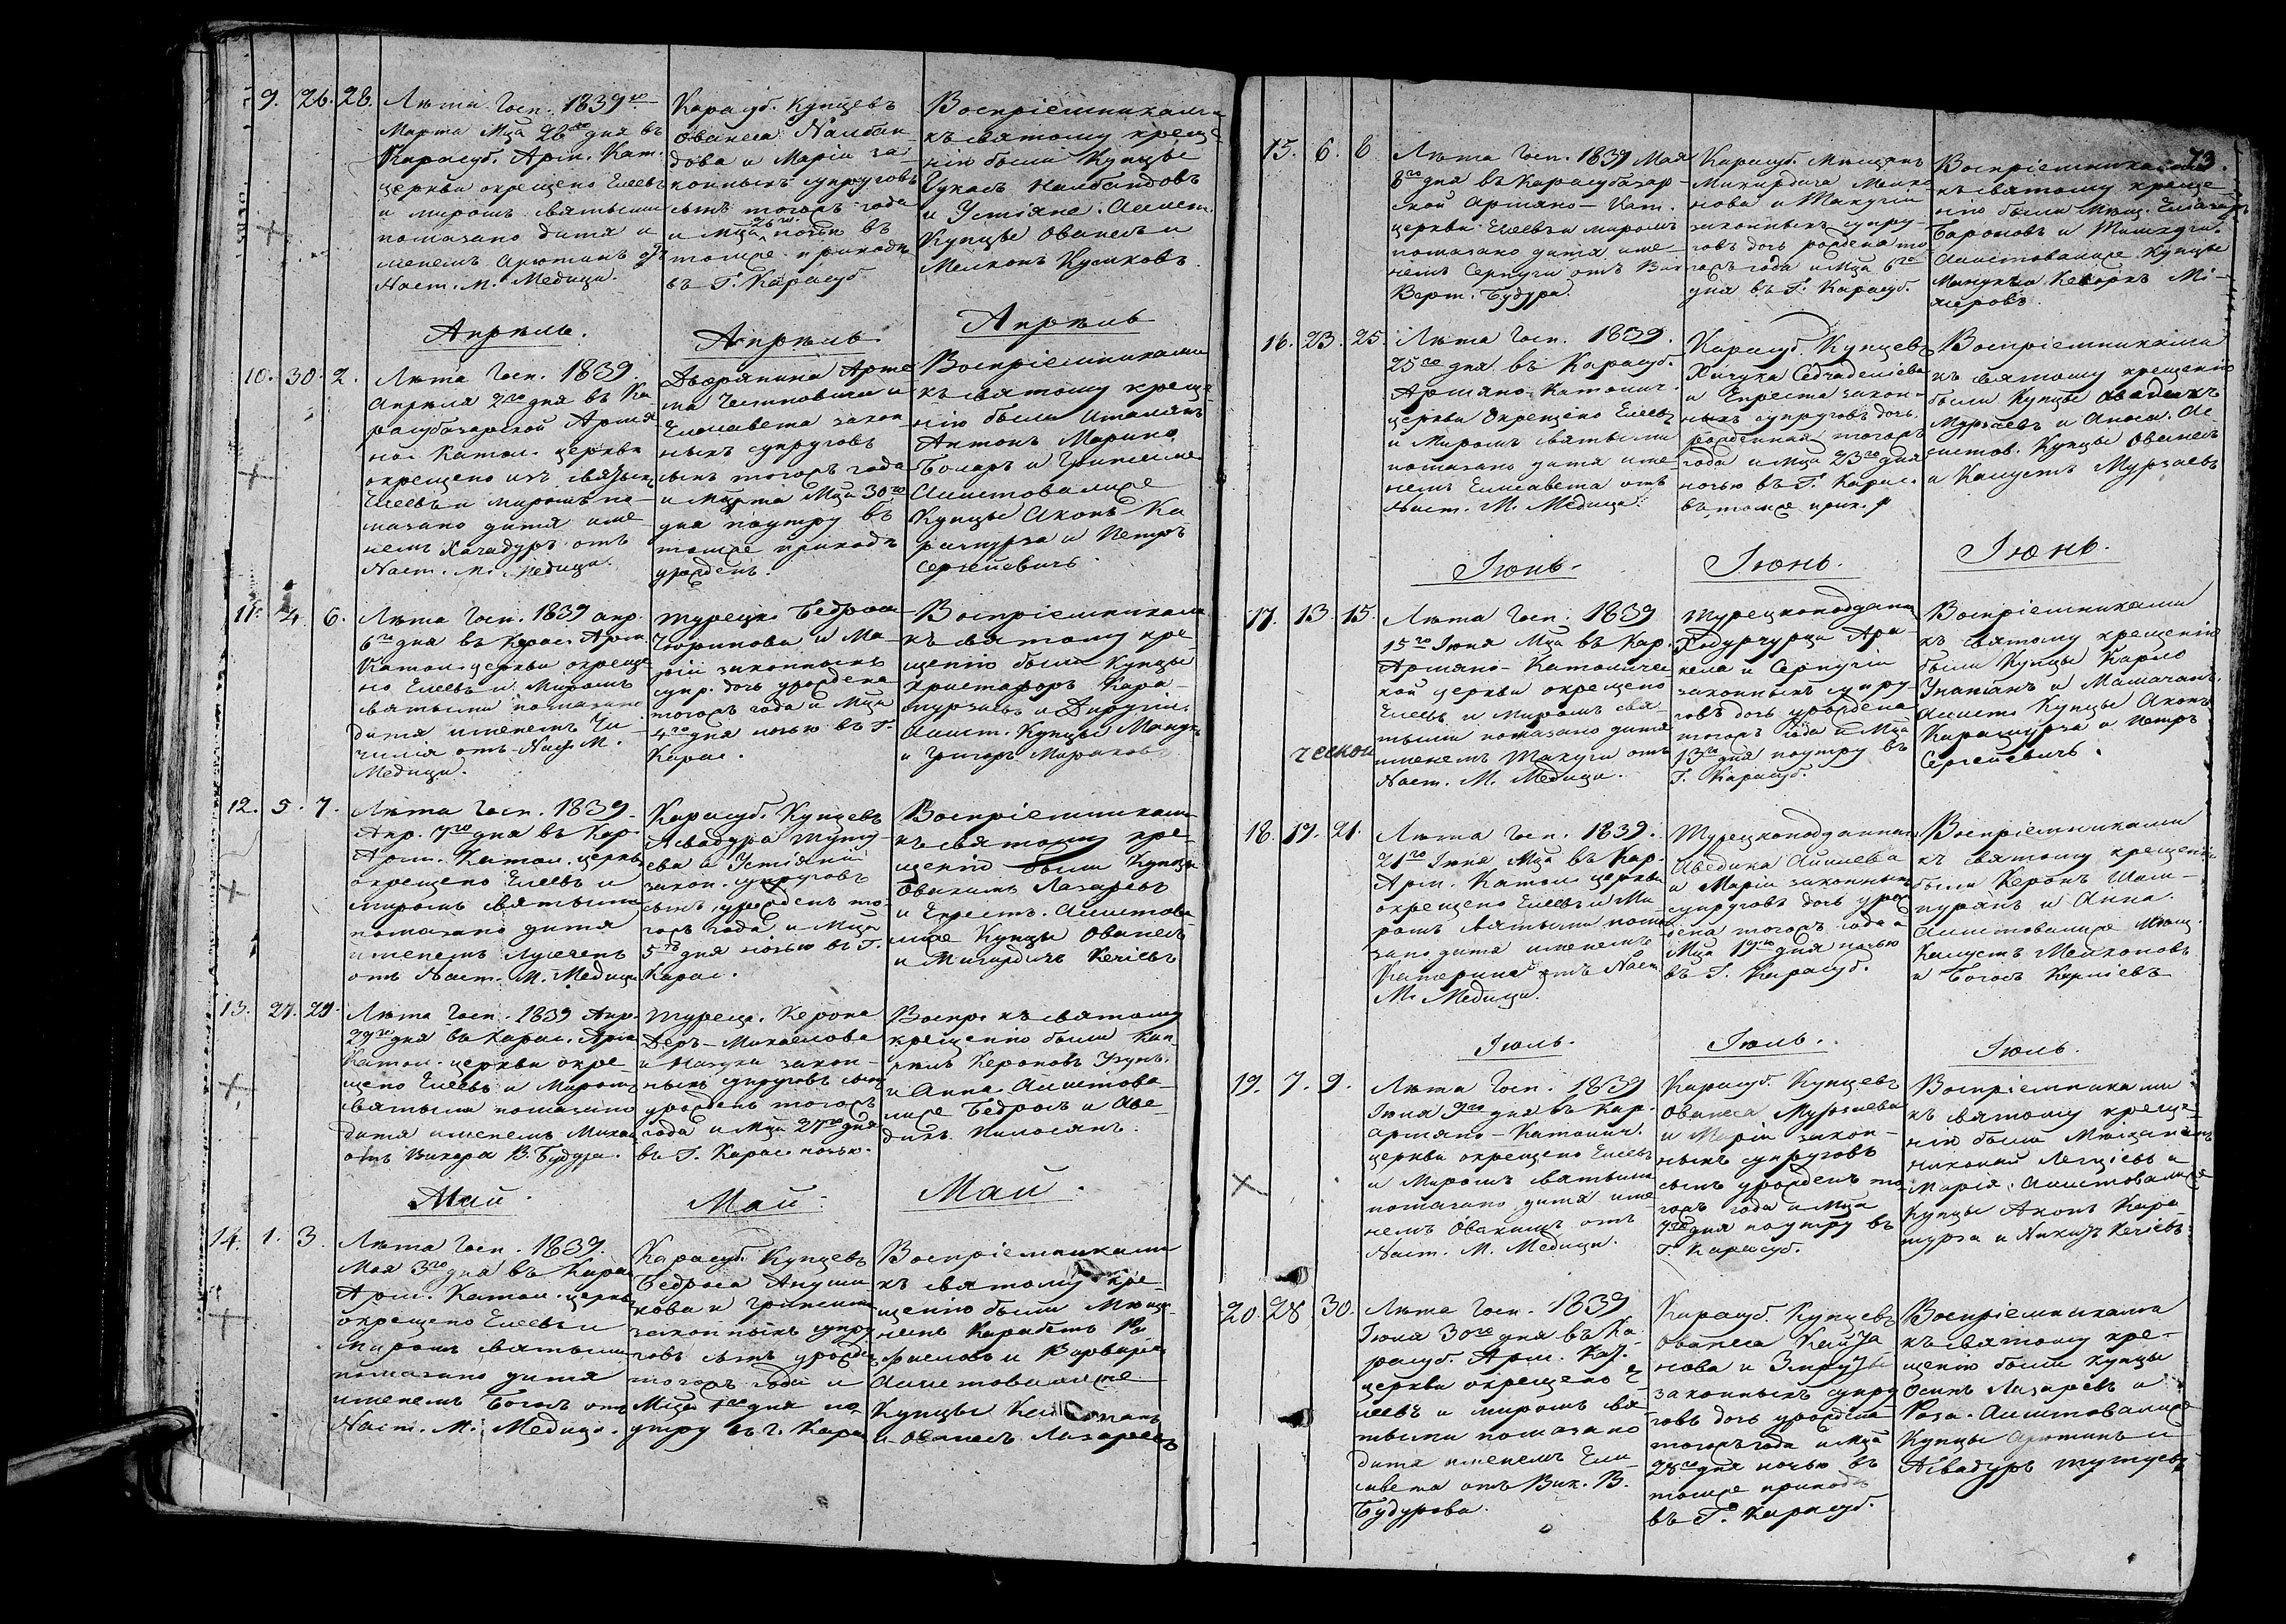 9. 26. 28.
Лѣта Госп. 1839го
Марта Мца 28го дня въ
Карасуб. Арм. Кат.
церкви окрещено Елеевъ
и миромъ святыми
помазано дитя и
менемъ Арютинъ
Наст. М. Медици.
Карасуб. Купцевъ
Ованеса Налбан
дова и Маріи за
конныхъ супруговъ
сынъ тогожъ года
и Мца 26го ночью въ
томже приходѣ
въ Г. Карасуб
Воспріемниками
къ святому креще
нію были Купцы
Гукасъ Налбандовъ
и Устіяне. Ассист.
Купцы Ованесъ и
Мелконъ Кусиковъ.
Апрѣль.
Апрѣль.
Апрѣль
10. 30. 2.
Лѣта Госп. 1839.
Апрѣля 2го дня въ Ка
расубазарской Армя
но Катол. церкви
окрещено изъ святыхъ
Елеевъ и миромъ по-
мазано дитя име
немъ Хачадуръ отъ
Наст. М. Медици.
Дворянина Арте
ма и
Елисавета закон
ныхъ супруговъ
сынъ тогожъ года
и Марта Мца 30го
дня поутру въ
томже приходѣ
урожденъ.
Воспріемниками
къ святому креще
нію были Италіянъ
Антонъ Марино
и Грипсиме
Ассистовалисе
Купцы Акопъ Ка
рамурза и Петръ
Сергѣевичъ
11. 4. 6.
Лѣта Госп. 1839 апр.
6го дня въ Карас. Арм.
Катол. церкви окреще
но Елеевъ и Миромъ
святыми помазано
дитя именемъ Чи
чилія отъ Наст. М.
Медици.
Турецко Бедроса
и Ма-
ріи законныхъ
супр. дочь урождена
тогожъ года и Мца
4го дня ночью въ Г.
Карас.
Воспріемниками
къ святому кре
щенію были Купцы
Христафоръ Кара-
мурзаевъ и Дируги.
Ассист. Купцы
и Григоръ
12. 5. 7.
Лѣта Госп. 1839.
Апр. 7го дня въ Кар.
Арм. Катол. церкви
окрещено Елеевъ и
миромъ святыми
помазано дитя
именемъ
отъ Наст. М. Медици
Карасуб. Купцевъ
Асвадура Туту-
ева и Устіяніи
закон. супруговъ
сынъ, урожденъ то-
гожъ года и Мца
5го дня ночью въ Г.
Карас.
Воспріемниками
къ святому кре-
щенію были Купцы
Овакимъ Лазаревъ
и Епрестъ. Ассистова
лисе Купцы Ованесъ
и Мигирдичъ Кечіевъ
13. 27. 29.
Лѣта Госп. 1839 Апр.
29го дня въ Карас. Арм
Катол. церкви окре-
щено Елеевъ и Миромъ
святыми помазано
дитя именемъ
отъ Викаря В. Будура.
Турецк. Керопа
Деръ-Микаелова
и Назука закон-
ныхъ супруговъ сынъ
урожденъ тогожъ
года и Мца 27го дня
въ Г. Карас. ночью.
Воспр. къ святому
крещенію были
Кероповъ
и Анна. Ассистова-
лисе Бедросъ и Аве-
дикъ
Май.
Май.
Май.
14. 1. 3.
Лѣта Госп. 1839.
Мая 3го дня въ Карас
Арм. Катол. церкви
окрещено Елеевъ и
миромъ святыми
помазано дитя
именемъ Богосъ отъ
Наст. М. Медици.
Карасуб. Купцевъ
Бедроса
и Грипсиме
законныхъ супру
говъ сынъ урожденъ
тогожъ года и
Мца 1го дня по
утру въ г. Карас
Воспріемниками
къ святому кре-
щенію были Мѣща-
нинъ Карабетъ
и Варвара
Ассистовалисе
Купцы
и Ованесъ Лазаревъ
73.
15. 6. 8
Лѣта Госп. 1839 Мая
8го дня въ Карасубазар-
ской Армяно-Кат.
церкви Елеевъ и миромъ
помазано дитя име
немъ Серпуги отъ Вик
Верт. Будура.
Карасуб. Мѣщанъ
Микирдича
и Такугіи
законныхъ супру-
говъ дочь рождена то
гожъ года и Мца 6го
дня въ Г. Карасуб.
Воспріемниками
къ святому креще
нію были Мѣщ. Еліазаръ
Бароновъ и
Ассистовалисе. Купцы
и Кеворкъ
16. 23. 25.
Лѣта Госп. 1839.
25го дня въ Карасуб.
Армяно-Катонич.
церкви Окрещено Елеевъ
и Миромъ святыми
помазано дитя име-
немъ Елисавета отъ
Наст. М. Медици.
Карасуб. Купцевъ
и Епреста закон-
ныхъ супруговъ дочь
рожденная тогожъ
года и Мца 23го дня
ночью въ Г. Карас.
въ томже прих.
Воспріемниками
къ святому крещенію
были Купцы Аведикъ
Мурзаевъ и Ас
систов. Купцы Ованесъ
и Калустъ Мурзаевъ
Іюнь.
Іюнь.
Іюнь.
17. 13. 15.
Лѣта Госп. 1839
15го Іюня Мца въ Кар.
Армяно-Католичес
кой церкви окрещено
Елеевъ и Миромъ свя-
тыми помазано дитя
именемъ Такуги отъ
Наст. М. Медици.
ческой
Турецкоподдан
Ара-
кела и Серпугіи
законныхъ супру-
говъ дочь урождена
тогожъ года и Мца
13го дня поутру въ
Г. Карасуб.
Воспріемниками
къ святому крещенію
были Купцы Карло
и
Ассист. Купцы Акопъ
Карамурза и Петръ
Сергѣевичъ.
18. 19. 21.
Лѣта Госп. 1839.
21го Іюня Мца въ Кар.
Арм. Катол. церкви
окрещено Елеевъ и Ми-
ромъ святыми пома
зано дитя именемъ
Катерина отъ Наст.
М. Медици.
Турецкоподданнаго
Аведика
и Маріи законныхъ
супруговъ дочь урож
дена тогожъ года и
Мца 19го дня ночью
въ Г. Карасуб.
Воспріемниками
къ святому крещенію
были Керопъ
и Анна.
Ассистовалисе Мѣщ.
Калустъ Мелконовъ
и Богосъ
Іюль.
Іюль.
Іюль.
19. 7. 9.
Лѣта Госп. 1839
Іюля 9го дня въ Кар.
Армяно-Катонич.
церкви окрещено Елеевъ
и Миромъ святыми
помазано дитя име
немъ Овакимъ отъ
Наст. М. Медици.
Карасуб. Купцевъ
Ованеса Мурзаева
и Маріи закон-
ныхъ супруговъ
сынъ урожденъ то
гожъ года и Мца
7го дня поутру въ
Г. Карасуб.
Воспріемниками
къ святому креще-
нію были Мѣщанинъ
и
Марія. Ассистовалисе
Купцы Акопъ Кара-
мурза и Кечіевъ.
20. 28. 30.
Лѣта Госп. 1839
Іюля 30го дня въ Ка
расуб. Арм. Кат.
церкви окрещено Е
леевъ и миромъ свя
тыми помазано
дитя именемъ Ели
савета отъ Вик. В.
Будурова.
Карасуб. Купцевъ
Ованеса
нова и
законныхъ супру
говъ дочь урождена
тогожъ года и Мца
28го дня ночью въ
томже приходѣ
въ Г. Карасуб.
Воспріемниками
къ святому кре-
щенію были Купцы
Осипъ Лазаревъ и
Роза. Ассистовалисе
Купцы Арютинъ и
Асвадуръ Тутуевъ